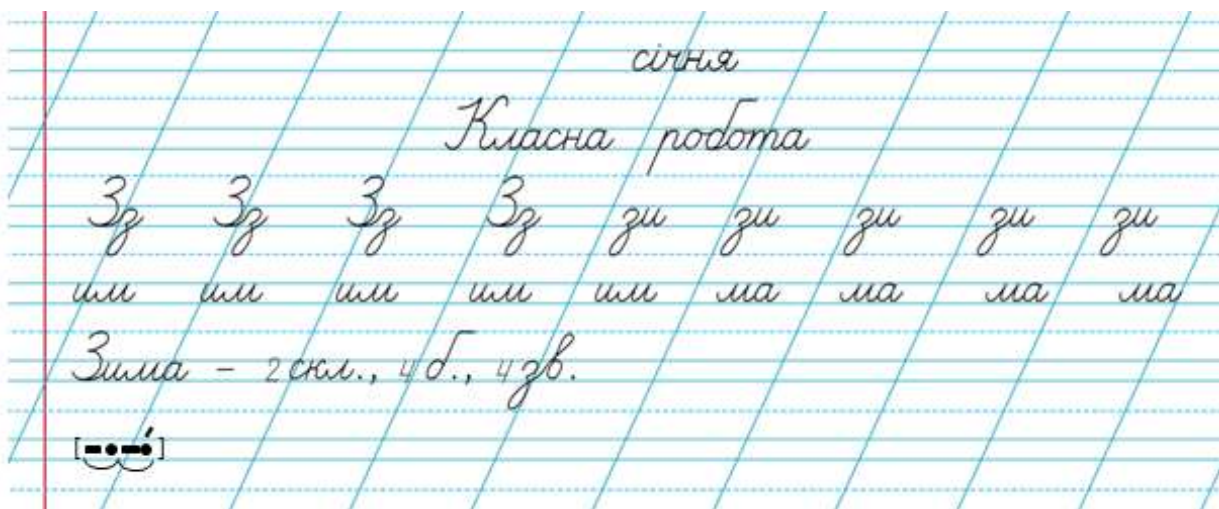 січня
Класна робота
Зз Зз Зз Зз зи зи зи зи зи
им им им им им ма ма ма ма
Зима - 2 скл., 4 б., 4 зв.
[–•–•́]